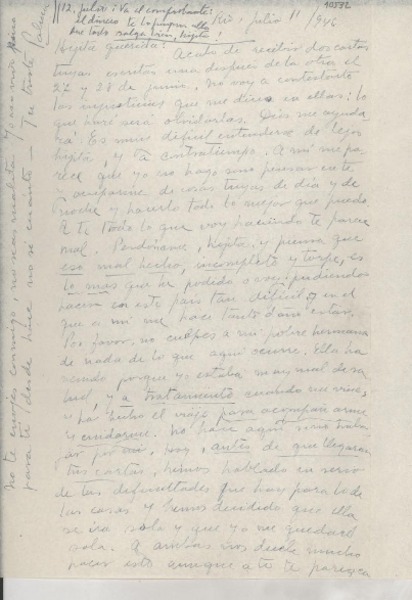 12, julio: Va el comprobante:
el dinero te lo pagan allá
Que todo salga bien, hijita!
10572
Río, julio 11 / 946
Hijita querida: Acabo de recibir dos cartas
tuyas escritas una después de la otra el
27 y 28 de junio. No voy a contestarte
las injusticias que me dices en ellas: lo
que haré será olvidarlas. Dios me ayuda
rá. Es muy difícil entenderse de lejos
hijita, y a contratiempo. A mí me pa
rece que yo no hago sino pensar en ti
y ocuparme de cosas tuyas de día y de
noche y hacerlo todo lo mejor que puedo.
A ti todo lo que voy haciendo te parece
mal. Perdóname, hijita, y piensa que
eso mal hecho, incompleto y torpe, es
lo más que he podido o voy pudiendo
hacer en este país tan difícil, en el
que a mí me hace tanto daño estar.
Por favor, no culpes a mi pobre hermana
de nada de lo que aquí ocurre. Ella ha
venido porque yo estaba muy mal de sa
lud, y a tratamiento cuando me vine,
y ha hecho el viaje para acompañarme
y cuidarme. No hace aquí sino traba
jar por mí. Hoy, antes de que llegaran
tus cartas, hemos hablado en serio
de las dificultades que hay para lo de
las casas y hemos decidido que ella
se irá sola y que yo me quedaré
sola. A ambas nos duele mucho
hacer esto aunque a ti te parezca
No te enojes conmigo, no seas malita. Yo
para ti desde hace no sé cuánto — Tu triste